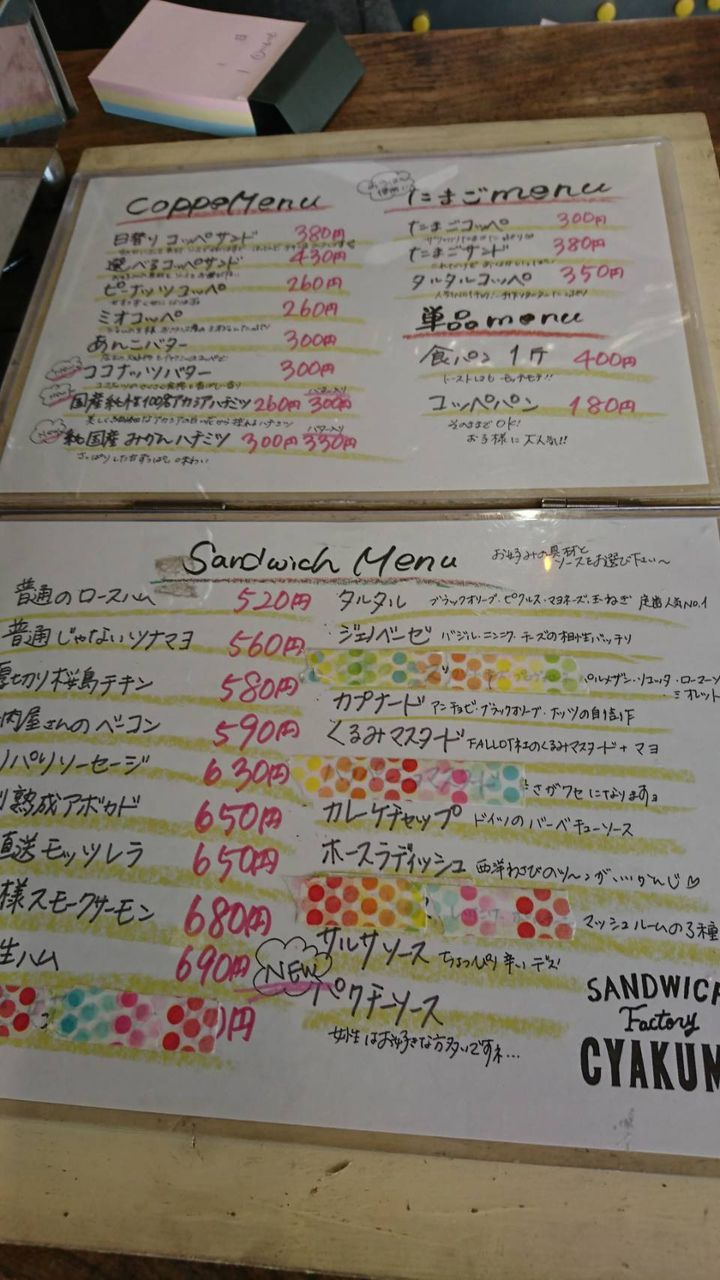 Coppe Menu
日替り コッペサンド 380円
選べるコッペサンド 430円
ピーナッツコッペ 260円
ミオコッペ 260円
あんこバター 300円
ココナッツバター 300円
バター入り
国産純粋100%アカシアハチミツ 260円 300円
バター入り
純国産 みかんハチミツ 300円 330円
さっぱりした甘ずっぱい味わい
たまごmenu
たまごコッペ 300円
たまごサンド 380円
タルタルコッペ 350円
単品menu
食パン 1斤 400円
トーストしても モッチモチ!!
コッペパン 180円
そのままでOK!
お子様に大人気!!
Sandwich Menu
お好みの具材と
ソースをお選び下い〜
普通のロースハム 520円
普通じゃないツナマヨ 560円
厚切り桜島チキン 580円
肉屋さんのベーコン 590円
パリソーセージ 630円
熟成アボカド 650円
直送モッツレラ 650円
様スモークサーモン 680円
生ハム 690円
円
タルタル ブラックオリーブ・ピクルス・マヨネーズ・玉ねぎ 人気NO.1
ジェノベーゼ バジル・ニンニク・チーズの相性バッチリ
パルメザン・リコッタ・ロマーノ
ミオレット
カプナード アンチョビ・ブラックオリーブ・ナッツの自信作
くるみマスタード FALLOT社のくるみマスタード+マヨ
さがクセになりますョ
カレーケチャップ ドイツのバーベキューソース
ホースラディッシュ 西洋わさびのツ〜ンが...いいかんじ♡
マッシュルームの3種
サルサソース ちょっぴり辛いデス!
NEW
パクチーソース
女性はお好きな方多いですネ...
SANDWICH
Factory
CYAKUM